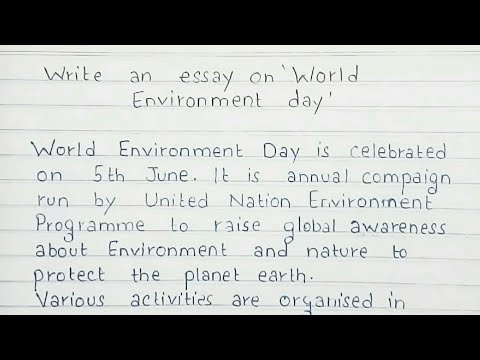 Write an essay on 'World
Environment day'
World Environment Day is celebrated
on 5th June. It is annual compaign
run by United Nation Environment
Programme to raise global awareness
about Environment and nature to
protect the planet earth.
Various activities are organised in